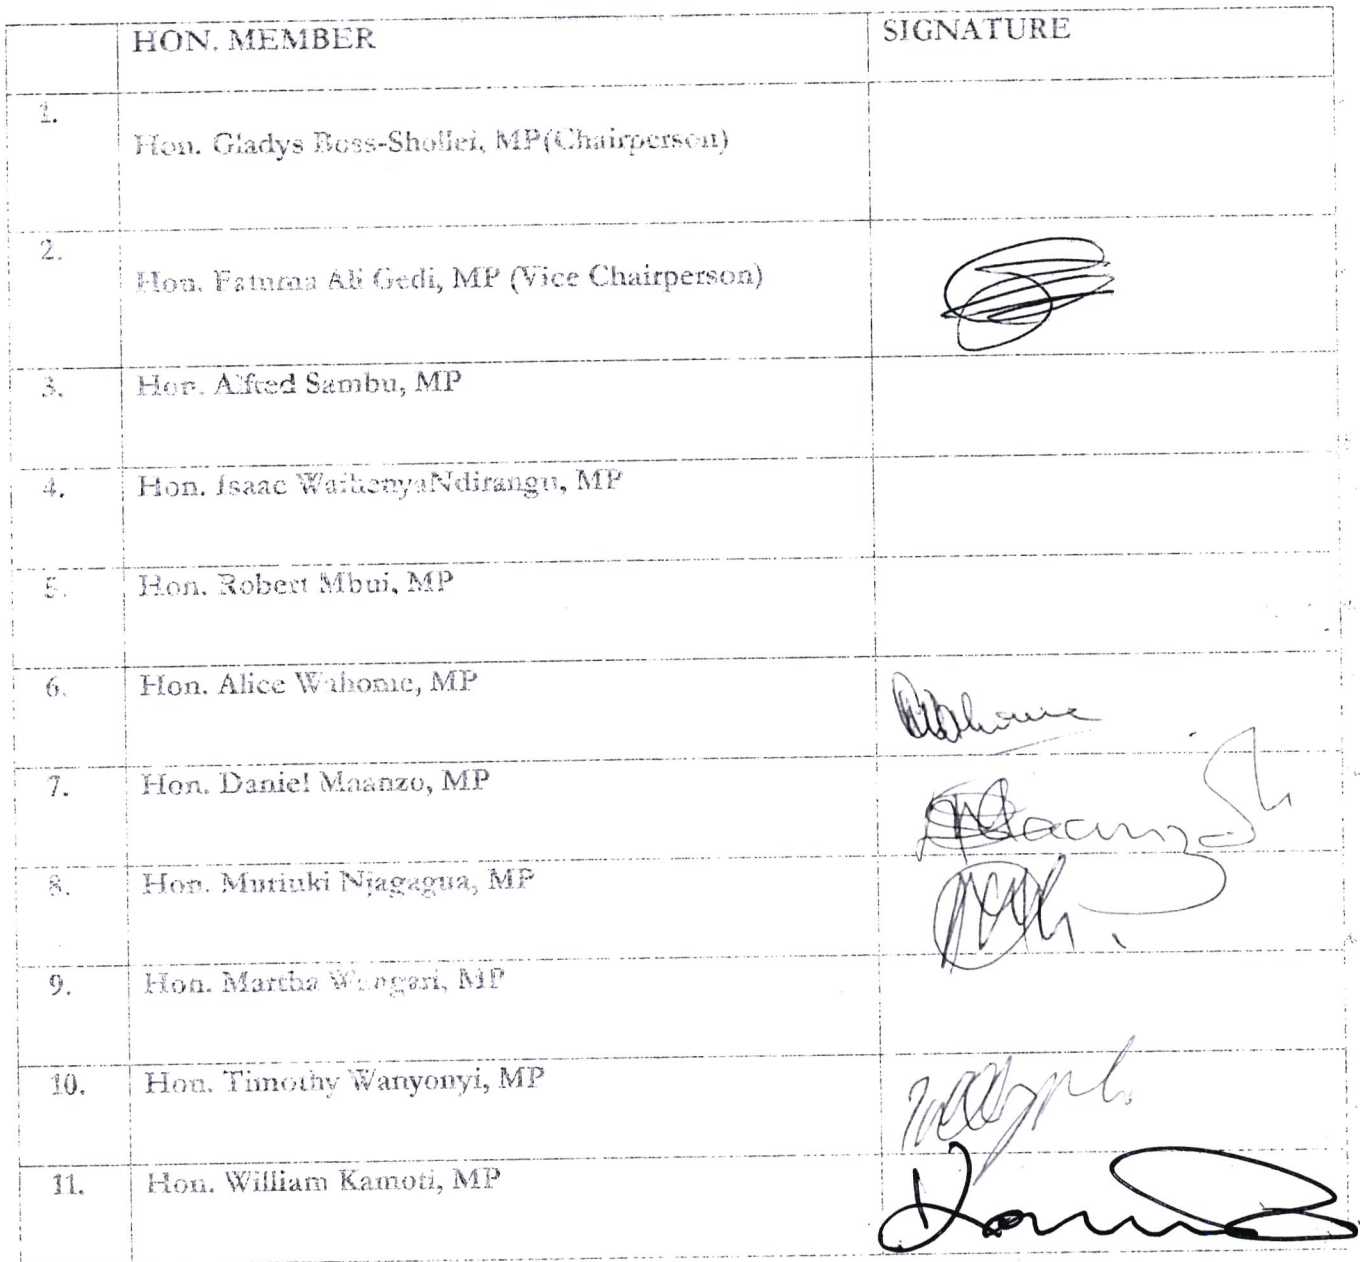 HON. MEMBER SIGNATURE
1. Hon. Gladys Boss-Shollei, MP(Chairperson)
2. Hon. Fatuma Ali Gedi, MP (Vice Chairperson)
3. Hon. Alfred Sambu, MP
4. Hon. Isaac WaihenyaNdirangu, MP
5. Hon. Robert Mbui, MP
6. Hon. Alice Wahome, MP
7. Hon. Daniel Maanzo, MP
8. Hon. Muriuki Njagagua, MP
9. Hon. Martha Wangari, MP
10. Hon. Timothy Wanyonyi, MP
11. Hon. William Kamoti, MP